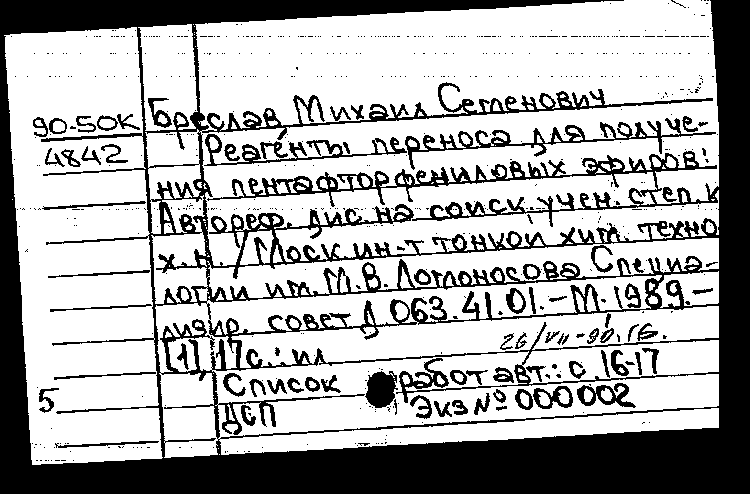 90-50К Бреслав Михаил Семенович
4842 Реагенты переноса для получе-
ния пентафторфениловых эфиров:
Автореф. дис. на соиск. учен. степ. к
х. н. / Моск. ин-т тонкой хим. техно
логии им. М. В. Ломоносова Специа-
лизир. совет Д 063.41.01. – М. 1989. –
[1], 17 с. : ил
26/VII-90. 16.
Список работ авт.: с. 16-17
5
ДСП Экз № 000002